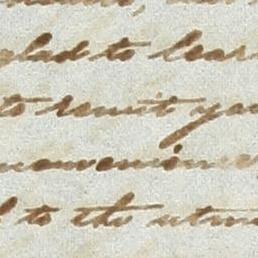 glad to lear
to remit you
nconvenience
to the utmo